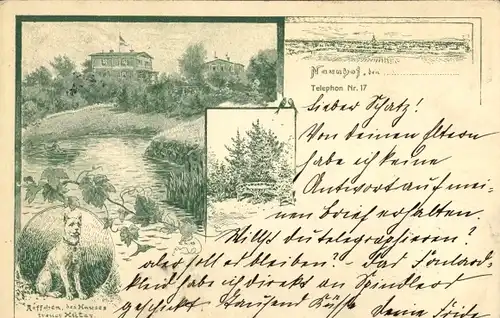 Naunhof, den
Telephon Nr. 17
Lieber Schatz!
Von deinen Eltern
habe ich keine
Antwort auf mei-
nen Brief erhalten.
Willst du telegraphieren?
aber soll es bleiben? - Das Foulard-
kleid habe ich direkt an Spindlers
geschickt Tausend Küsse Deine Frida
Räffchen, des Hauses
treuer Hüter.